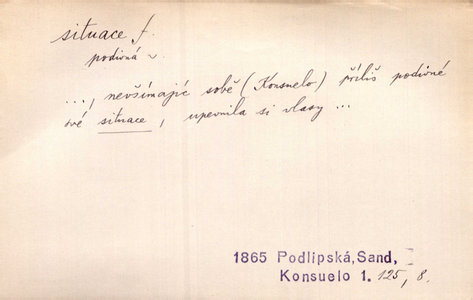 situace f.
podivná ~.
..., nevšímajíc sobě (Konsuelo) příliš podivné
své situace, upevnila si vlasy ...
1865 Podlipská, Sand,
Konsuelo 1. 125, 8.